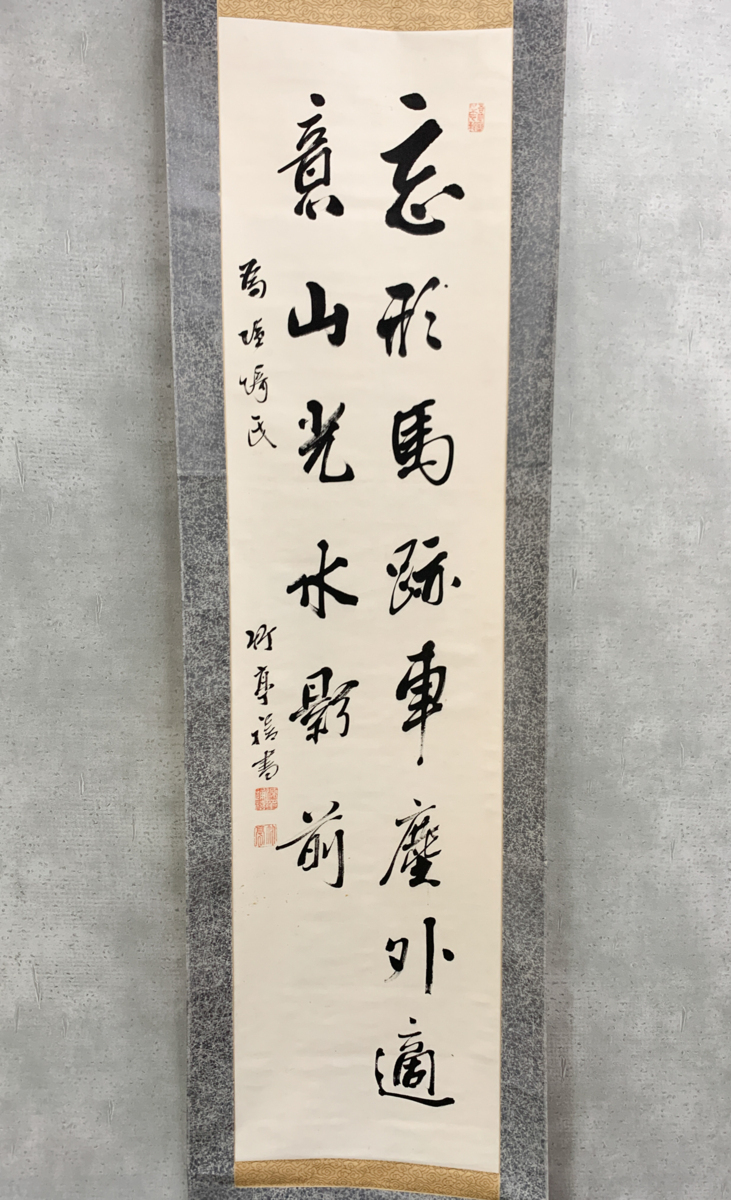 忘形馬跡車塵外適
意山光水影前
為
竹亭 書